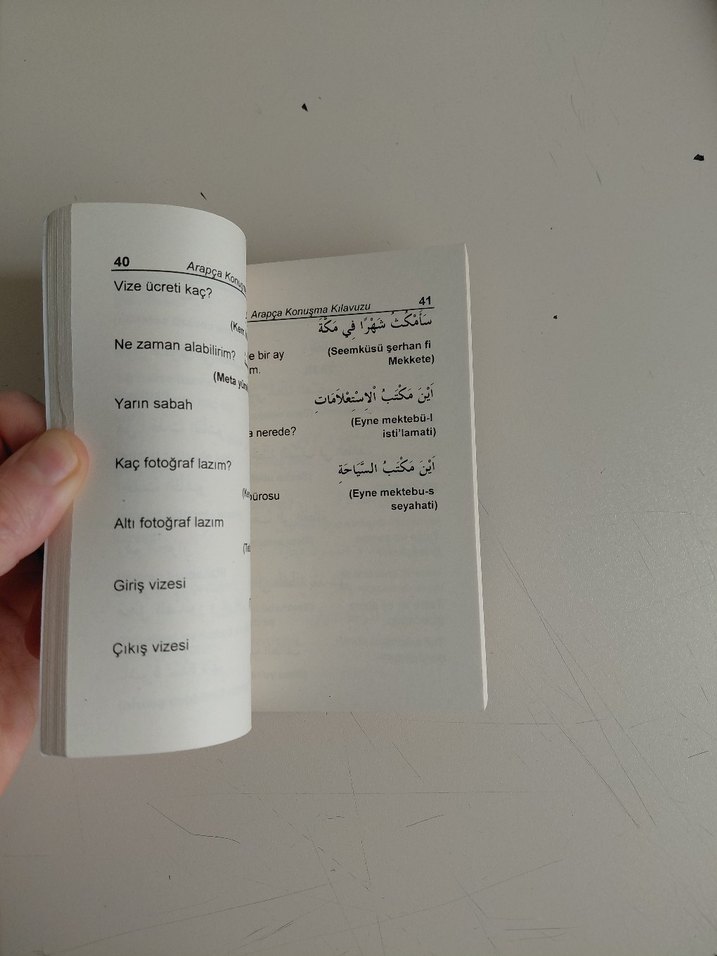 40
Arapça
Vize ücreti kaç?
Ne zaman alabilirim?
(Meta
Yarın sabah
Kaç fotoğraf lazım?
Altı fotoğraf lazım
Giriş vizesi
Çıkış vizesi
Arapça Konuşma Kılavuzu 41
سَأَمْكُثُ شَهْرًا فِي مَكَّةَ
bir ay (Seemküsü şerhan fi
Mekkete)
اَيْنَ مَكْتَبُ الْاِسْتِعْلَامَاتِ
(Eyne mektebü-l
nerede? isti'lamati)
اَيْنَ مَكْتَبُ السَّيَاحَةِ
(Eyne mektebu-s
seyahati)